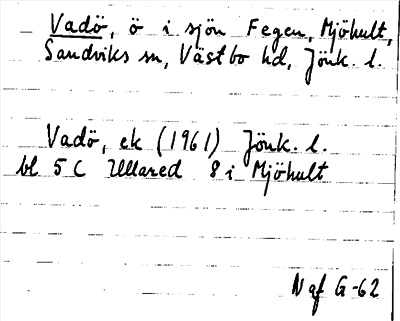 Vadö, ö i sjön Fegen, Mjöhult,
Sandviks sn, Västbo hd, Jönk. l.
Vadö, ek (1961) Jönk. l.
bl 5 C Ullared 8 i Mjöhult
N gf G-62